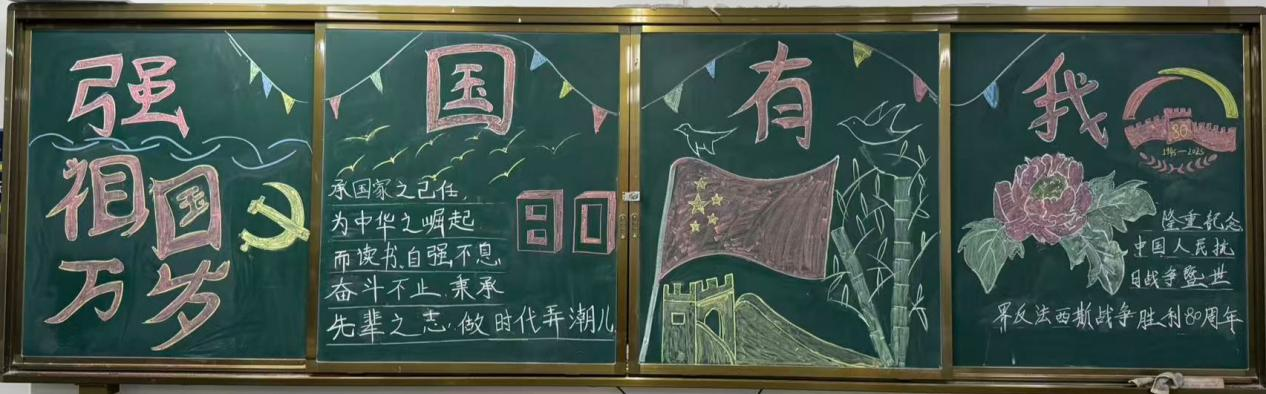 强国有我
祖国
万岁
承国家之己任,
为中华之崛起
而读书、自强不息,
奋斗不止、秉承
先辈之志,做时代弄潮儿
80
80
1945-2025
隆重纪念
中国人民抗
日战争暨世
界反法西斯战争胜利80周年